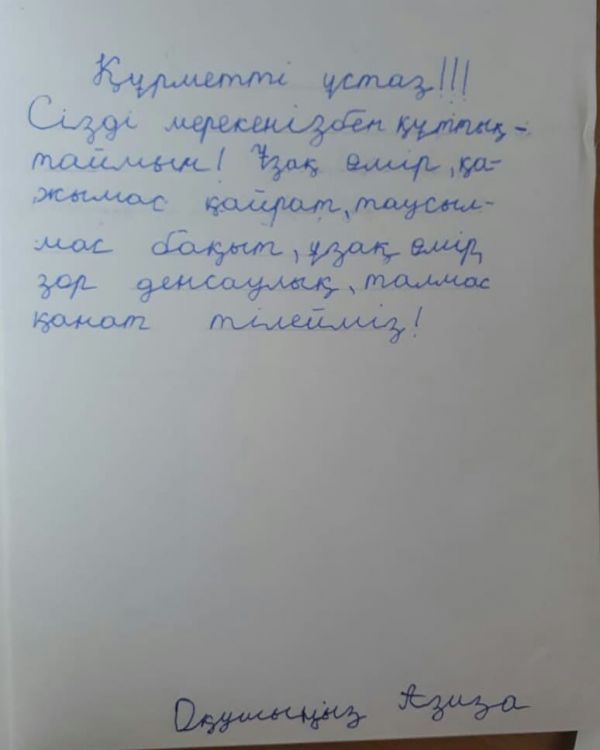 Құрметті ұстаз!!!
Сізді мерекенізбен құттық-
таймын! Ұзақ өмір, қа-
жымас қайрат, таусыл-
мас бақыт, ұзақ өмір,
зор денсаулық, талмас
қанат тілейміз!
Оқушыңыз Азиза